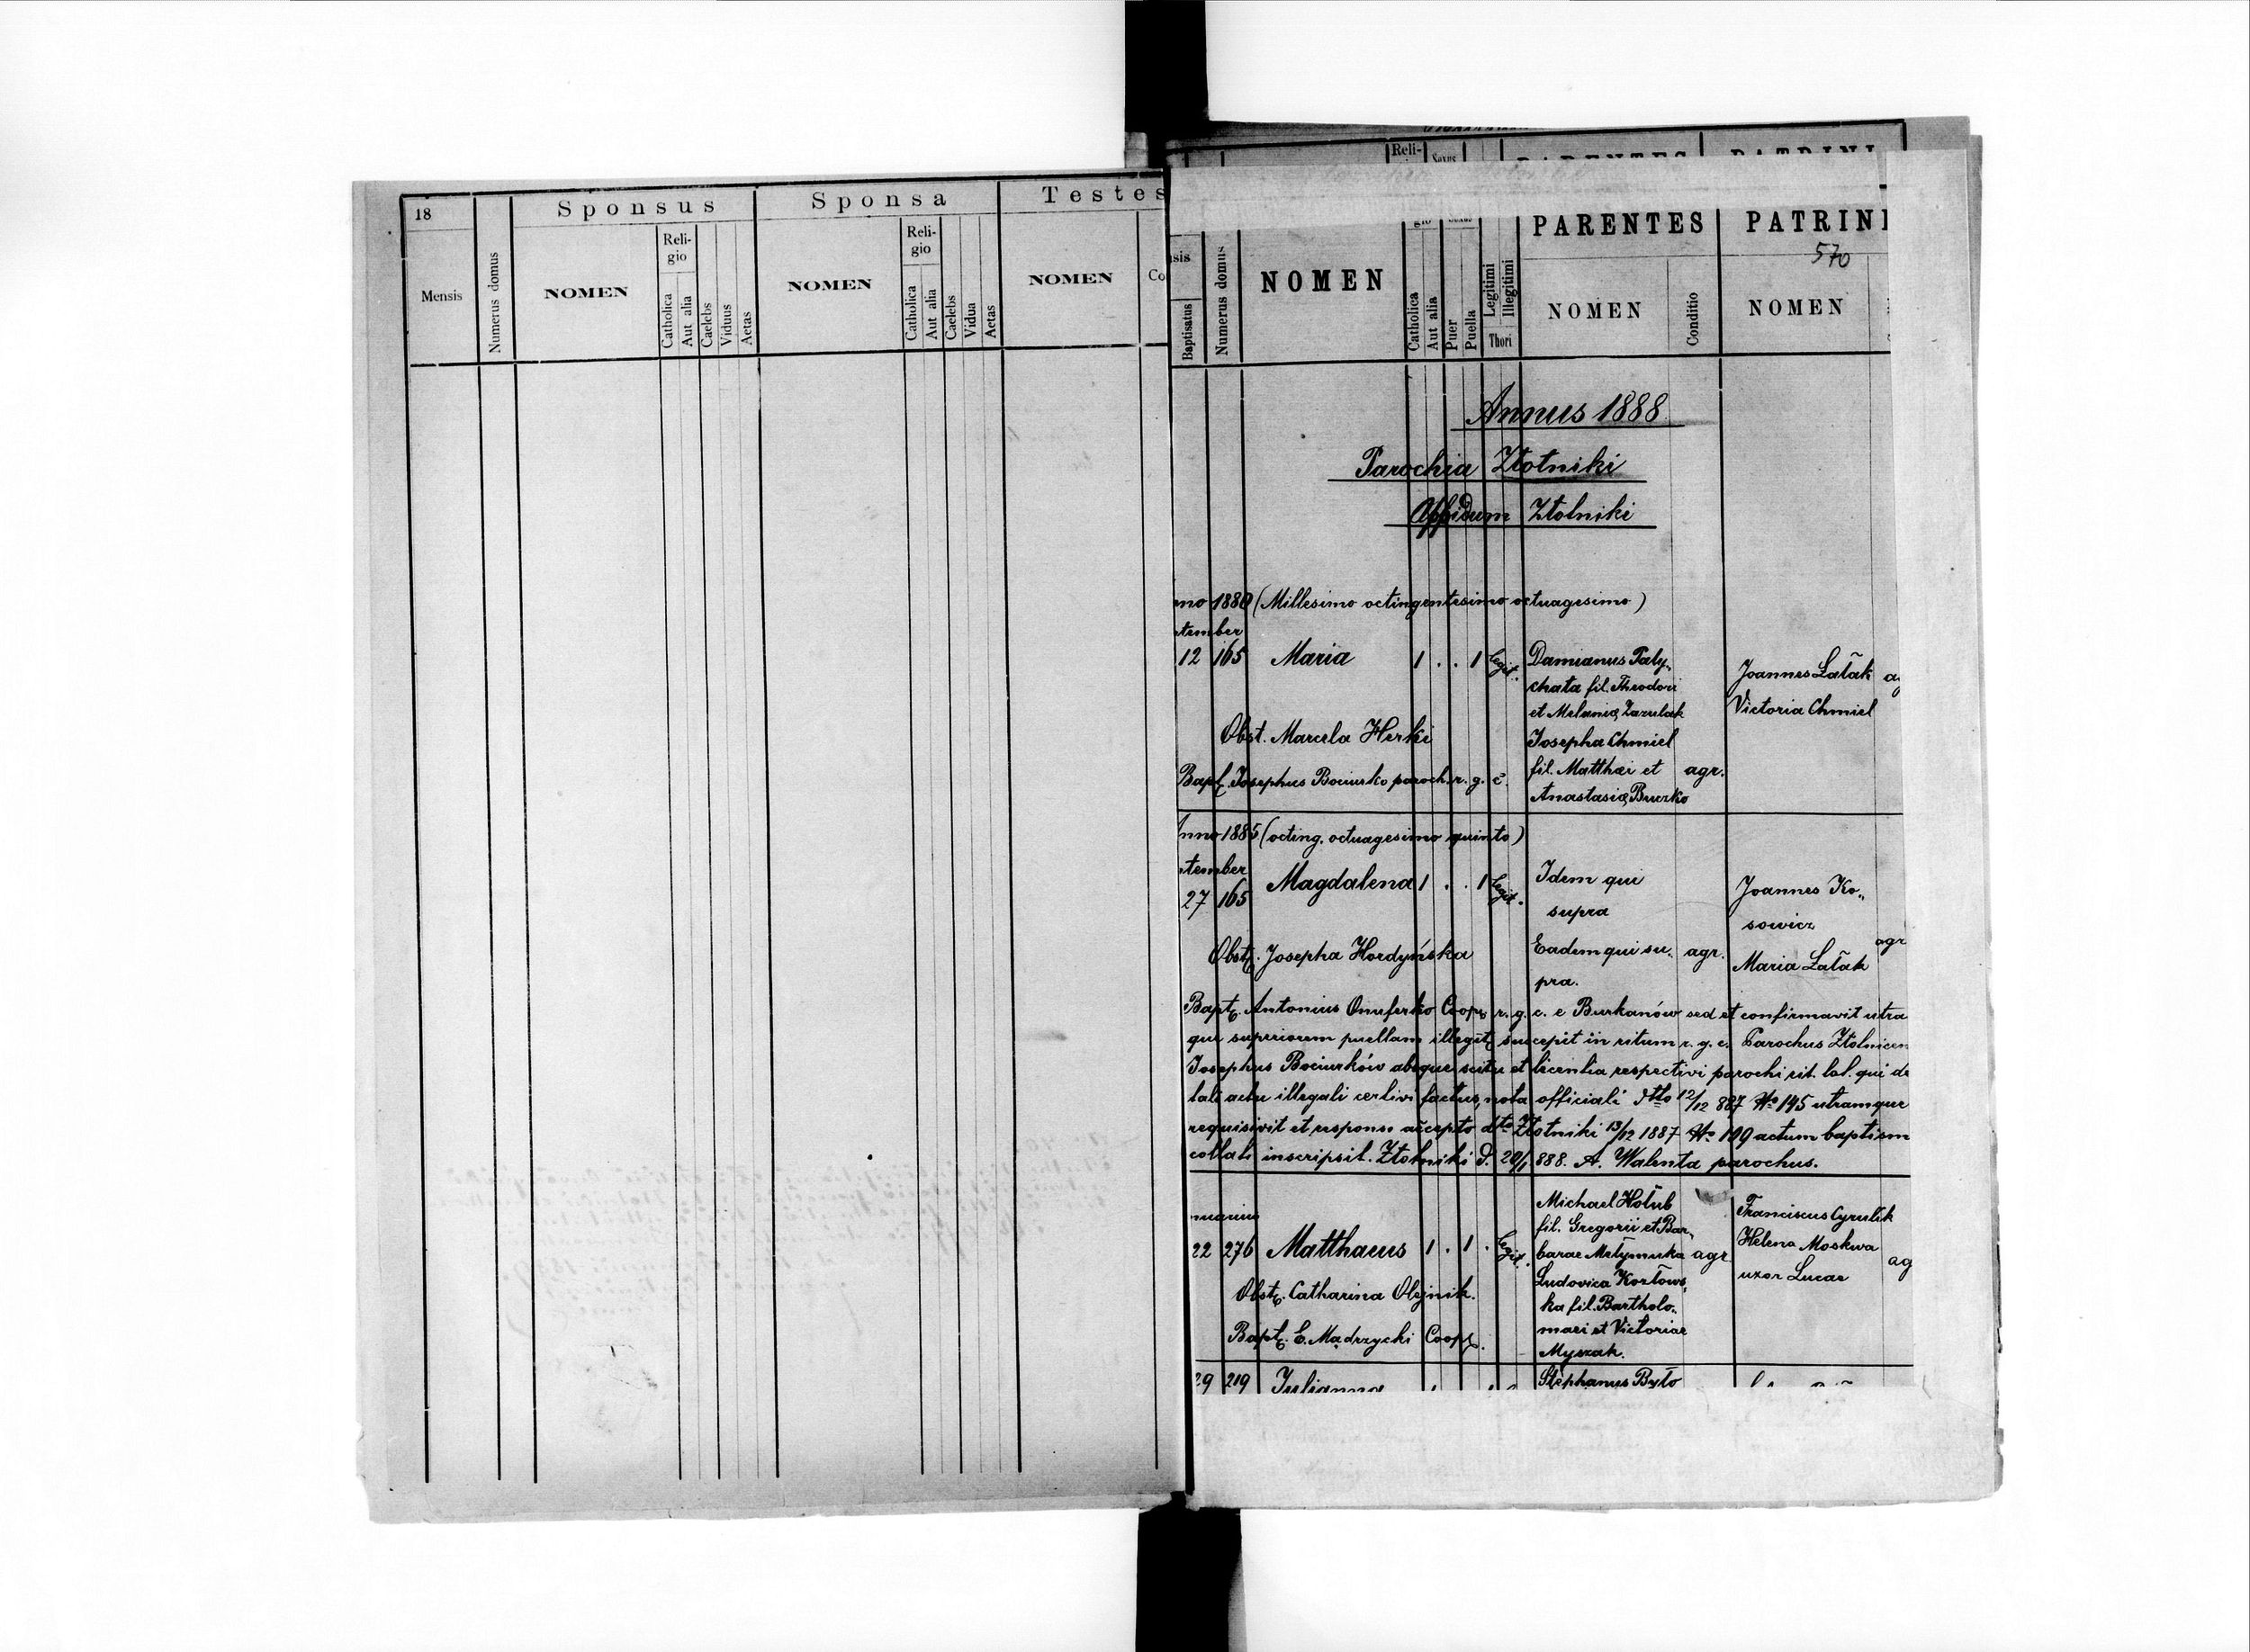 18
Sponsus
Sponsa
Testes
Mensis
Numerus domus
NOMEN
Religio
Catholica
Aut alia
Caelebs
Viduus
Aetas
NOMEN
Religio
Catholica
Aut alia
Caelebs
Vidua
Aetas
NOMEN
Co
Reli-
PARENTES
PATRINI
570
sis
Baptisatus
Numerus domus
NOMEN
Catholica
Aut alia
Puer
Puella
Legitimi
Illegitimi
Thori
NOMEN
Conditio
NOMEN
Annus 1888
Parochia Złotniki
Oppidum Złotniki
nno 1880 (Millesimo octingentesimo octuagesimo)
tember
12 165 Maria 1 . . 1 legit.
Damianus Paly-
chata fil. Theodori
et Melaniæ Zazulak
Josepha Chmiel
fil. Matthæi et agr.
Anastasiæ Buczko
Joannes Łatak
Victoria Chmiel
Obst. Marcela Herki
Bapt. Josephus Bociurko paroch. r. g. c.
Anno 1885 (octing. octuagesimo quinto)
tember
27 165 Magdalena 1 . . 1 legit.
Idem qui
supra
Eadem qui su- agr.
pra.
Joannes Ko-
sowicz
Maria Łatak
agr
Obst. Josepha Hordyńska
Bapt. Antonius Onuferko Coop. r. g. c. e Burkanów sed et confirmavit utra
que superiorem puellam illegit. suscepit in ritum r. g. c. Parochus Złotnicen
Josephus Bociurków absque scitu et licentia respectivi parochi rit. lat. qui de
tali actu illegali certivi factus, nota officiali dtto 12/12 887 No 145 utramque
requisivit et responso accepto dto Złotniki 13/12 1887 No 109 actum baptism
collati inscripsit. Złotniki d. 20/1 888. A. Walenta parochus.
nuarius
22 276 Matthaeus 1 . 1 . legit.
Michael Hołub
fil. Gregorii et Bar-
barae Metymuka agr
Ludovica Kozłows-
ka fil. Bartholo-
maei et Victoriae
Myszak.
Franciscus Cyrulik
Helena Moskwa
uxor Lucae
ag
Obst. Catharina Olejnik.
Bapt. E. Mądrzycki Coop.
29 219 Julianna
Stephanus Byto